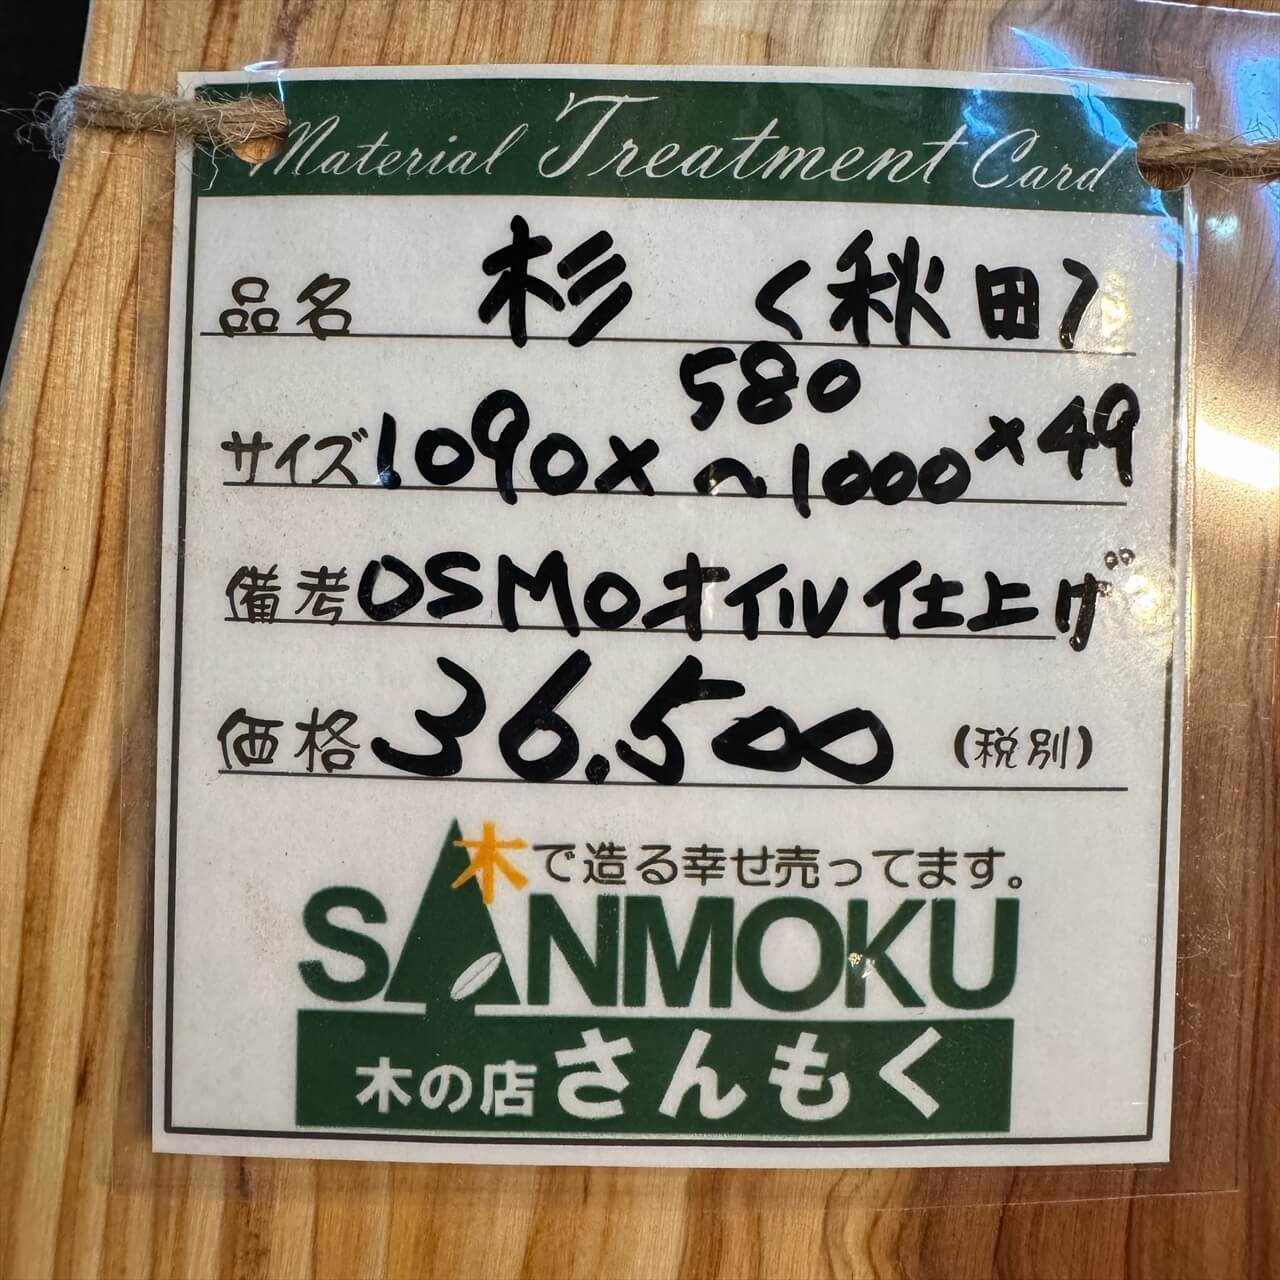 Material Treatment Card
品名 杉 〈秋田〉
サイズ 1090× 580~1000 ×49
備考 OSMOオイル仕上げ
価格 36.500 (税別)
木で造る幸せ売ってます。
SANMOKU
木の店 さんもく